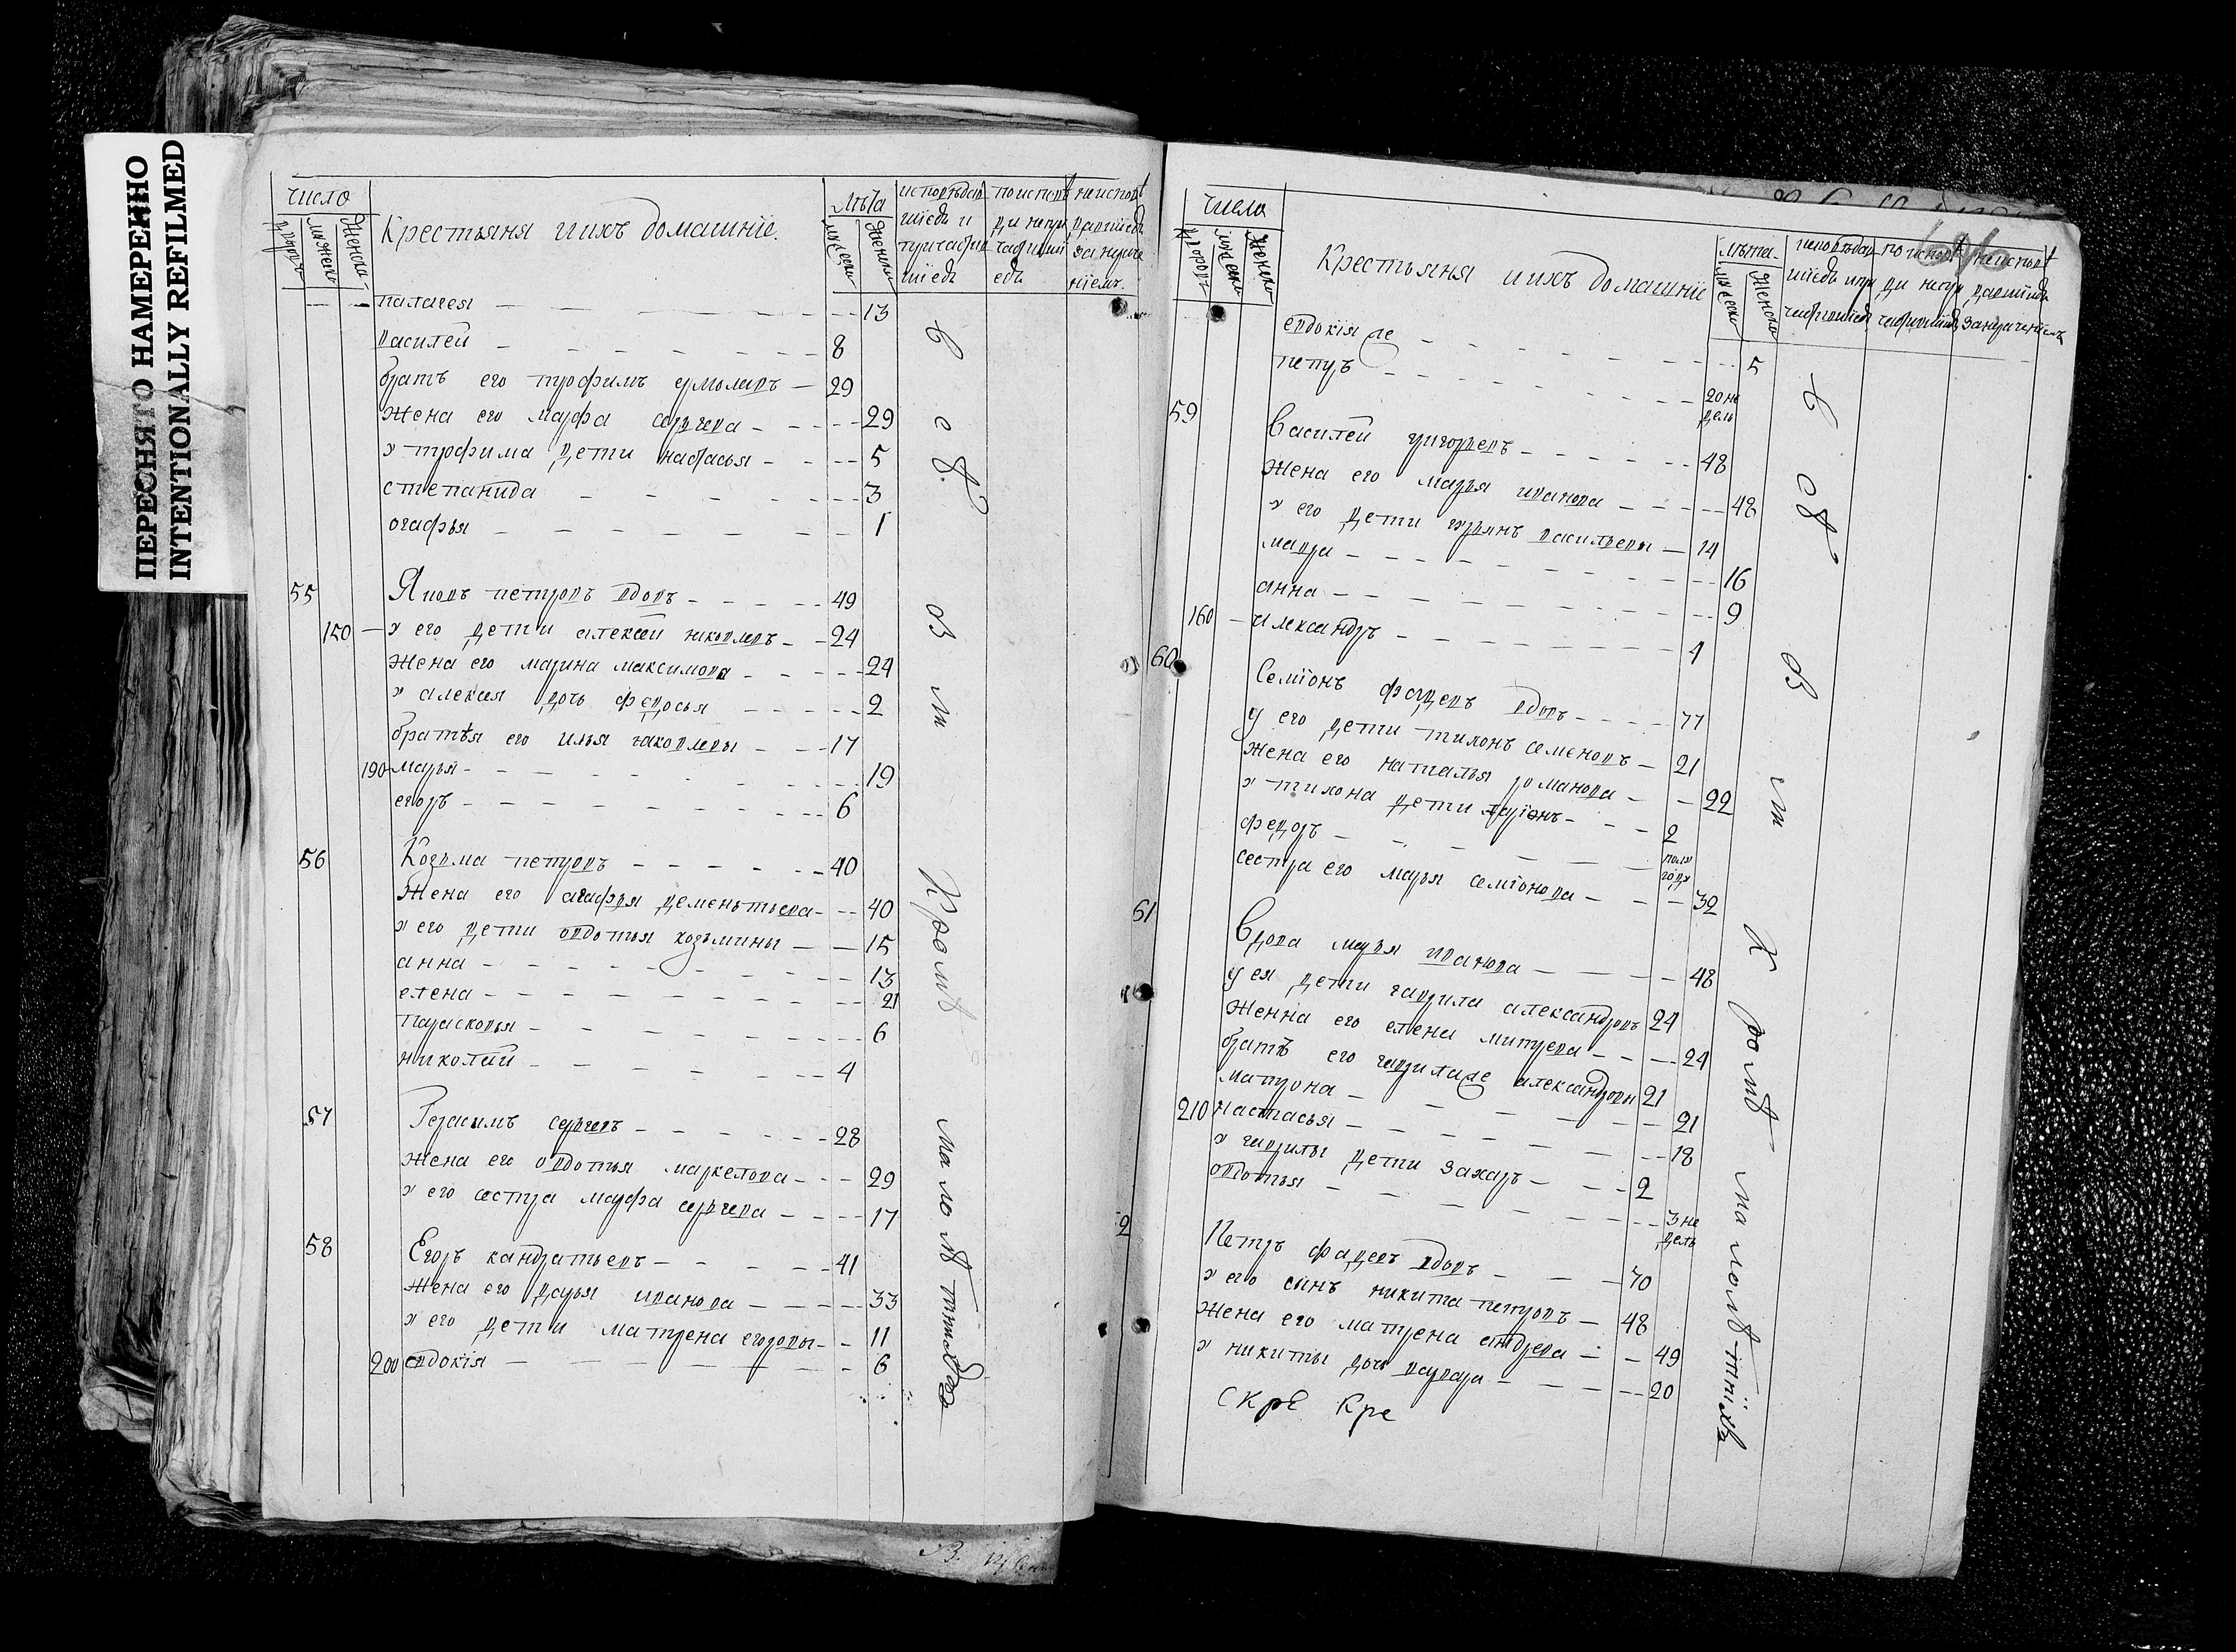 ПЕРЕСНЯТО НАМЕРЕННО
INTENTIONALLY REFILMED
число
Крестьяня и ихъ домашнїе.
лѣта
палагея 13
василей 8
братъ его трофимъ ермолаевъ 29
жена его марфа сергеева 29
у трофима дети настасья 5
степанида 3
огафья 1
55 Яковъ петровъ вдовъ 49
150 у его дети алексей яковлевъ 24
жена его марина максимова 24
у алексея дочь федосья 2
братья его илья яковлевы 17
190 марья 19
егоръ 6
56 Козма петровъ 40
жена его агафья дементьева 40
у его дети овдотья козьмины 15
анна 13
елена 21
парасковья 6
николай 4
57 Герасимъ сергеевъ 28
жена его овдотья маркелова 29
у его сестра марфа сергеева 17
58 Егоръ кандратьевъ 41
жена его дарья иванова 33
у его дети матрена егоровы 11
200 евдокїя 6
всѣ
Кромѣ малолѣтныхъ
числа
Крестьяня и ихъ домашнїе
лѣта
евдокїя же 5
петръ 20 не
дель
59 Василей григорьевъ 48
жена его марья иванова 48
у его дети василевы 14
мавра 16
анна 9
160 александръ 4
60 Семїонъ фадеевъ вдовъ 77
у его дети тихонъ семеновъ 21
жена его наталья романова 22
у тихона дети ларїонъ 2
федоръ полу
году
сестра его марья семїонова 32
61 Вдова марья иванова 48
у ея дети гаврила александровъ 24
женна его елена митрева 24
братъ его гаврила же александровы 21
матрона 21
210 настасья 18
у гаврилы дети захаръ 2
овдотья 3 не
дель
2 Петръ фадеевъ вдовъ 70
у его сынъ никита петровъ 48
жена его матрена андрева 49
у никиты дочь варвара 20
скре Кре
всѣ
Кромѣ малолѣтнїхъ